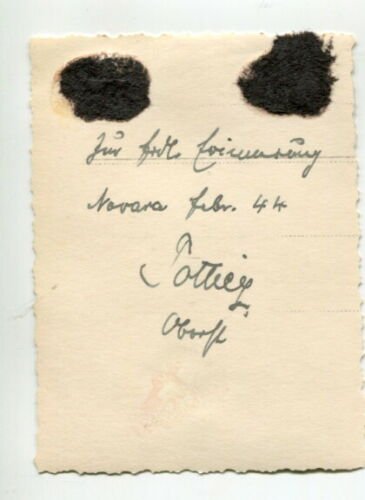 Zur frdl. Erinnerung
Novara febr. 44
Oberst